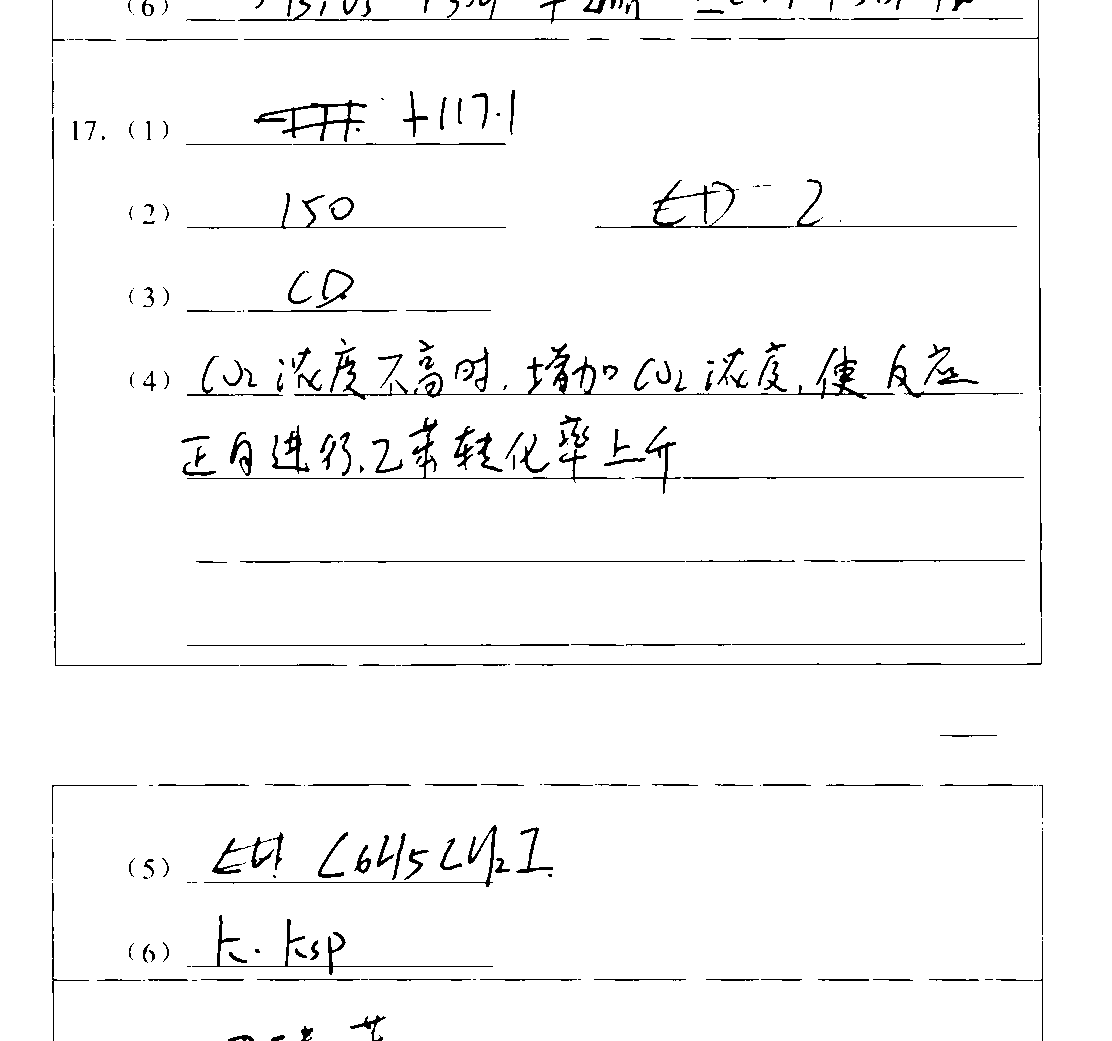 (6)
17. (1) +117.1
(2) 150 2
(3) CD
(4) CO2浓度不高时,增加CO2浓度,使反应
正向进行,乙苯转化率上升
(5) C6H5CH2I
(6) K·Ksp